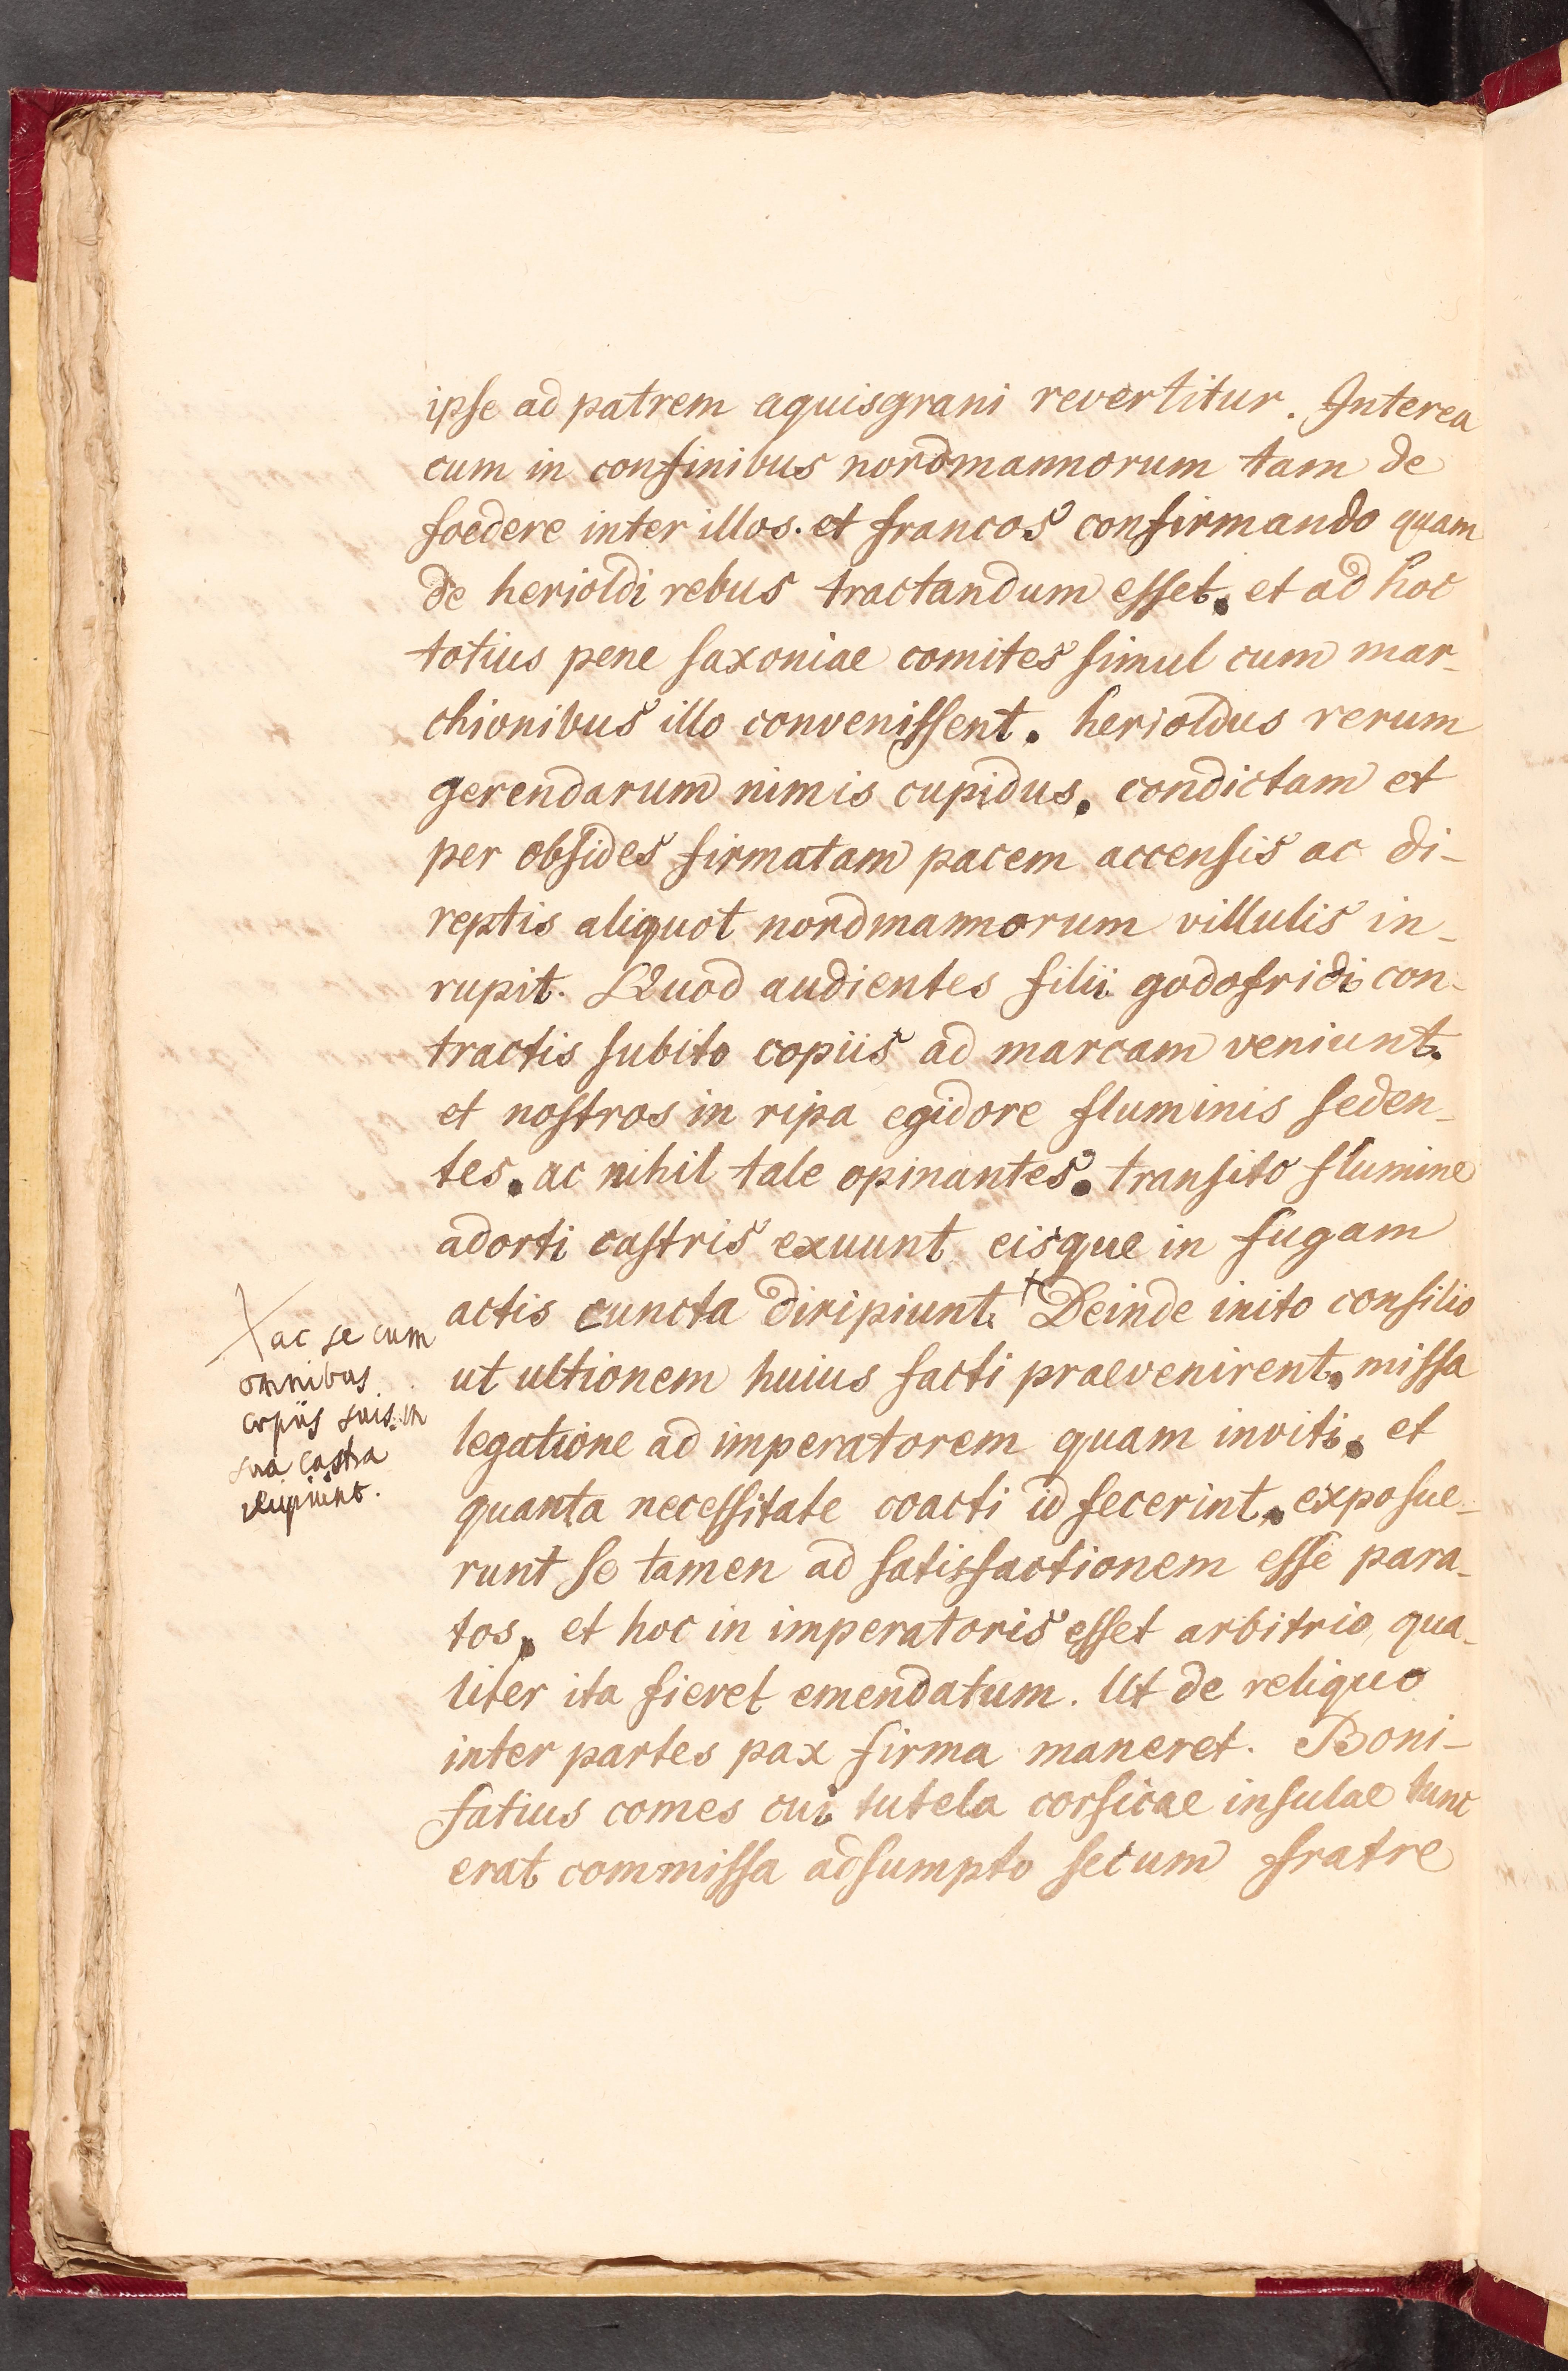 ipse ad patrem aquisgrani revertitur. Interea
cum in confinibus nordmannorum tam de
foedere inter illos. et francos confirmando quam
de herioldi rebus tractandum esset. et ad hoc
totius pene saxoniae comites simul cum mar-
chionibus illo convenissent. herioldus rerum
gerendarum nimis cupidus. condictam et
per obsides firmatam pacem accensis ac di-
reptis aliquot nordmannorum villulis in-
rupit. Quod audientes filii godofridi con-
tractis subito copiis ad marcam veniunt.
et nostros in ripa egidore fluminis seden-
tes. ac nihil tale opinantes. transito flumine
adorti castris exuunt eisque in fugam
actis cuncta diripiunt. + Deinde inito consilio
ut ultionem huius facti praevenirent. missa
legatione ad imperatorem quam inviti. et
quanta necessitate coacti id fecerint. exposue-
runt se tamen ad satisfactionem esse para-
tos. et hoc in imperatoris esset arbitrio qua-
liter ita fieret emendatum. Ut de reliquo
inter partes pax firma maneret. Boni-
fatius comes cui tutela corsicae insulae tunc
erat commissa adsumpto secum fratre
+ ac se cum
omnibus
copiis suis. in
sua castra
recipiunt.